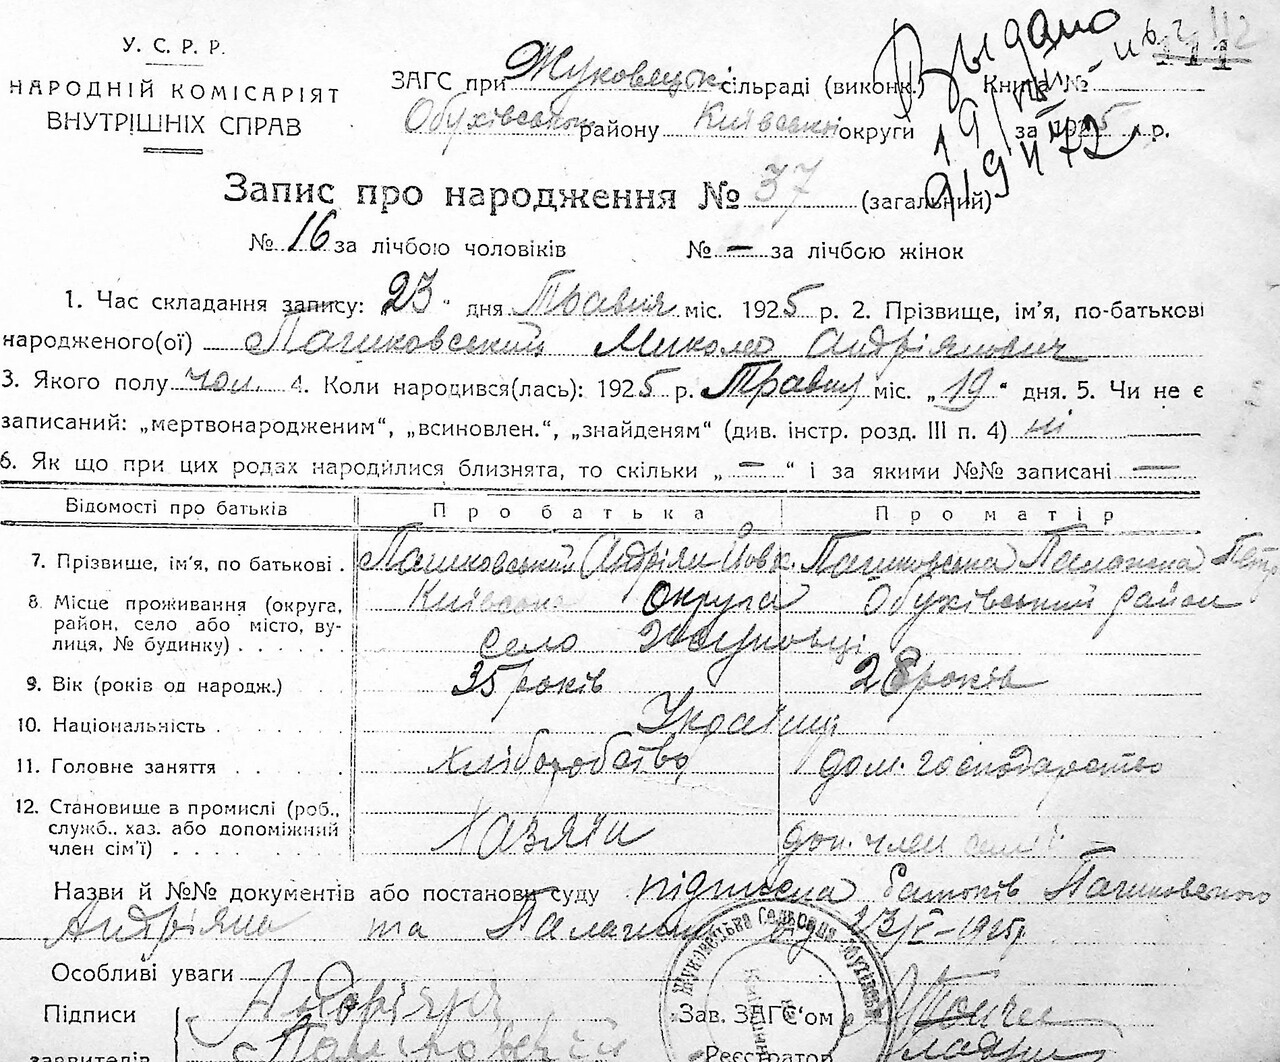 У. С. Р. Р.
НАРОДНІЙ КОМІСАРІЯТ
ВНУТРІШНІХ СПРАВ
Выдано
ЗАГС при Жуковецькі сільраді (виконк.) Книга №
111
112
Обухівського району Київської округи за 1925 р.
Запис про народження № 37 (загальний)
№ 16 за лічбою чоловіків № — за лічбою жінок
1. Час складання запису: 23 " дня Травня міс. 1925 р. 2. Прізвище, ім'я, по-батькові
народженого(ої) Пашковський Микола Андріянович
3. Якого полу чол. 4. Коли народився(лась): 1925 р. Травня міс. „ 19 " дня. 5. Чи не є
записаний: „мертвонародженим", „всиновлен.", „знайденям" (див. інстр. розд. III п. 4) ні
6. Як що при цих родах народилися близнята, то скільки „ — " і за якими №№ записані —
Відомості про батьків Про батька Про матір
7. Прізвище, ім'я, по батькові . Пашковський Андріян Пашковська Палажка Петр
8. Місце проживання (округа, Київська округа Обухівський район
район, село або місто, ву-
лиця, № будинку) . . . . . . село Жуковці
9. Вік (років од народж.) 35 років 28 років
10. Національність . . . . . . . Українці
11. Головне заняття . . . . . . хліборобство дом. господарство
12. Становище в промислі (роб.,
служб., хаз. або допоміжний Хазяїн доп. член сем'ї
член сім'ї) . . . . . . . . .
Назви й №№ документів або постанову суду підписка батьків Пашковського
Андріяна та Палажки від 23/V-1925р
Особливі уваги
Підписи Андріян Зав. ЗАГС'ом
заявителів Пашковський Реєстратор
Жуковецька Сельська